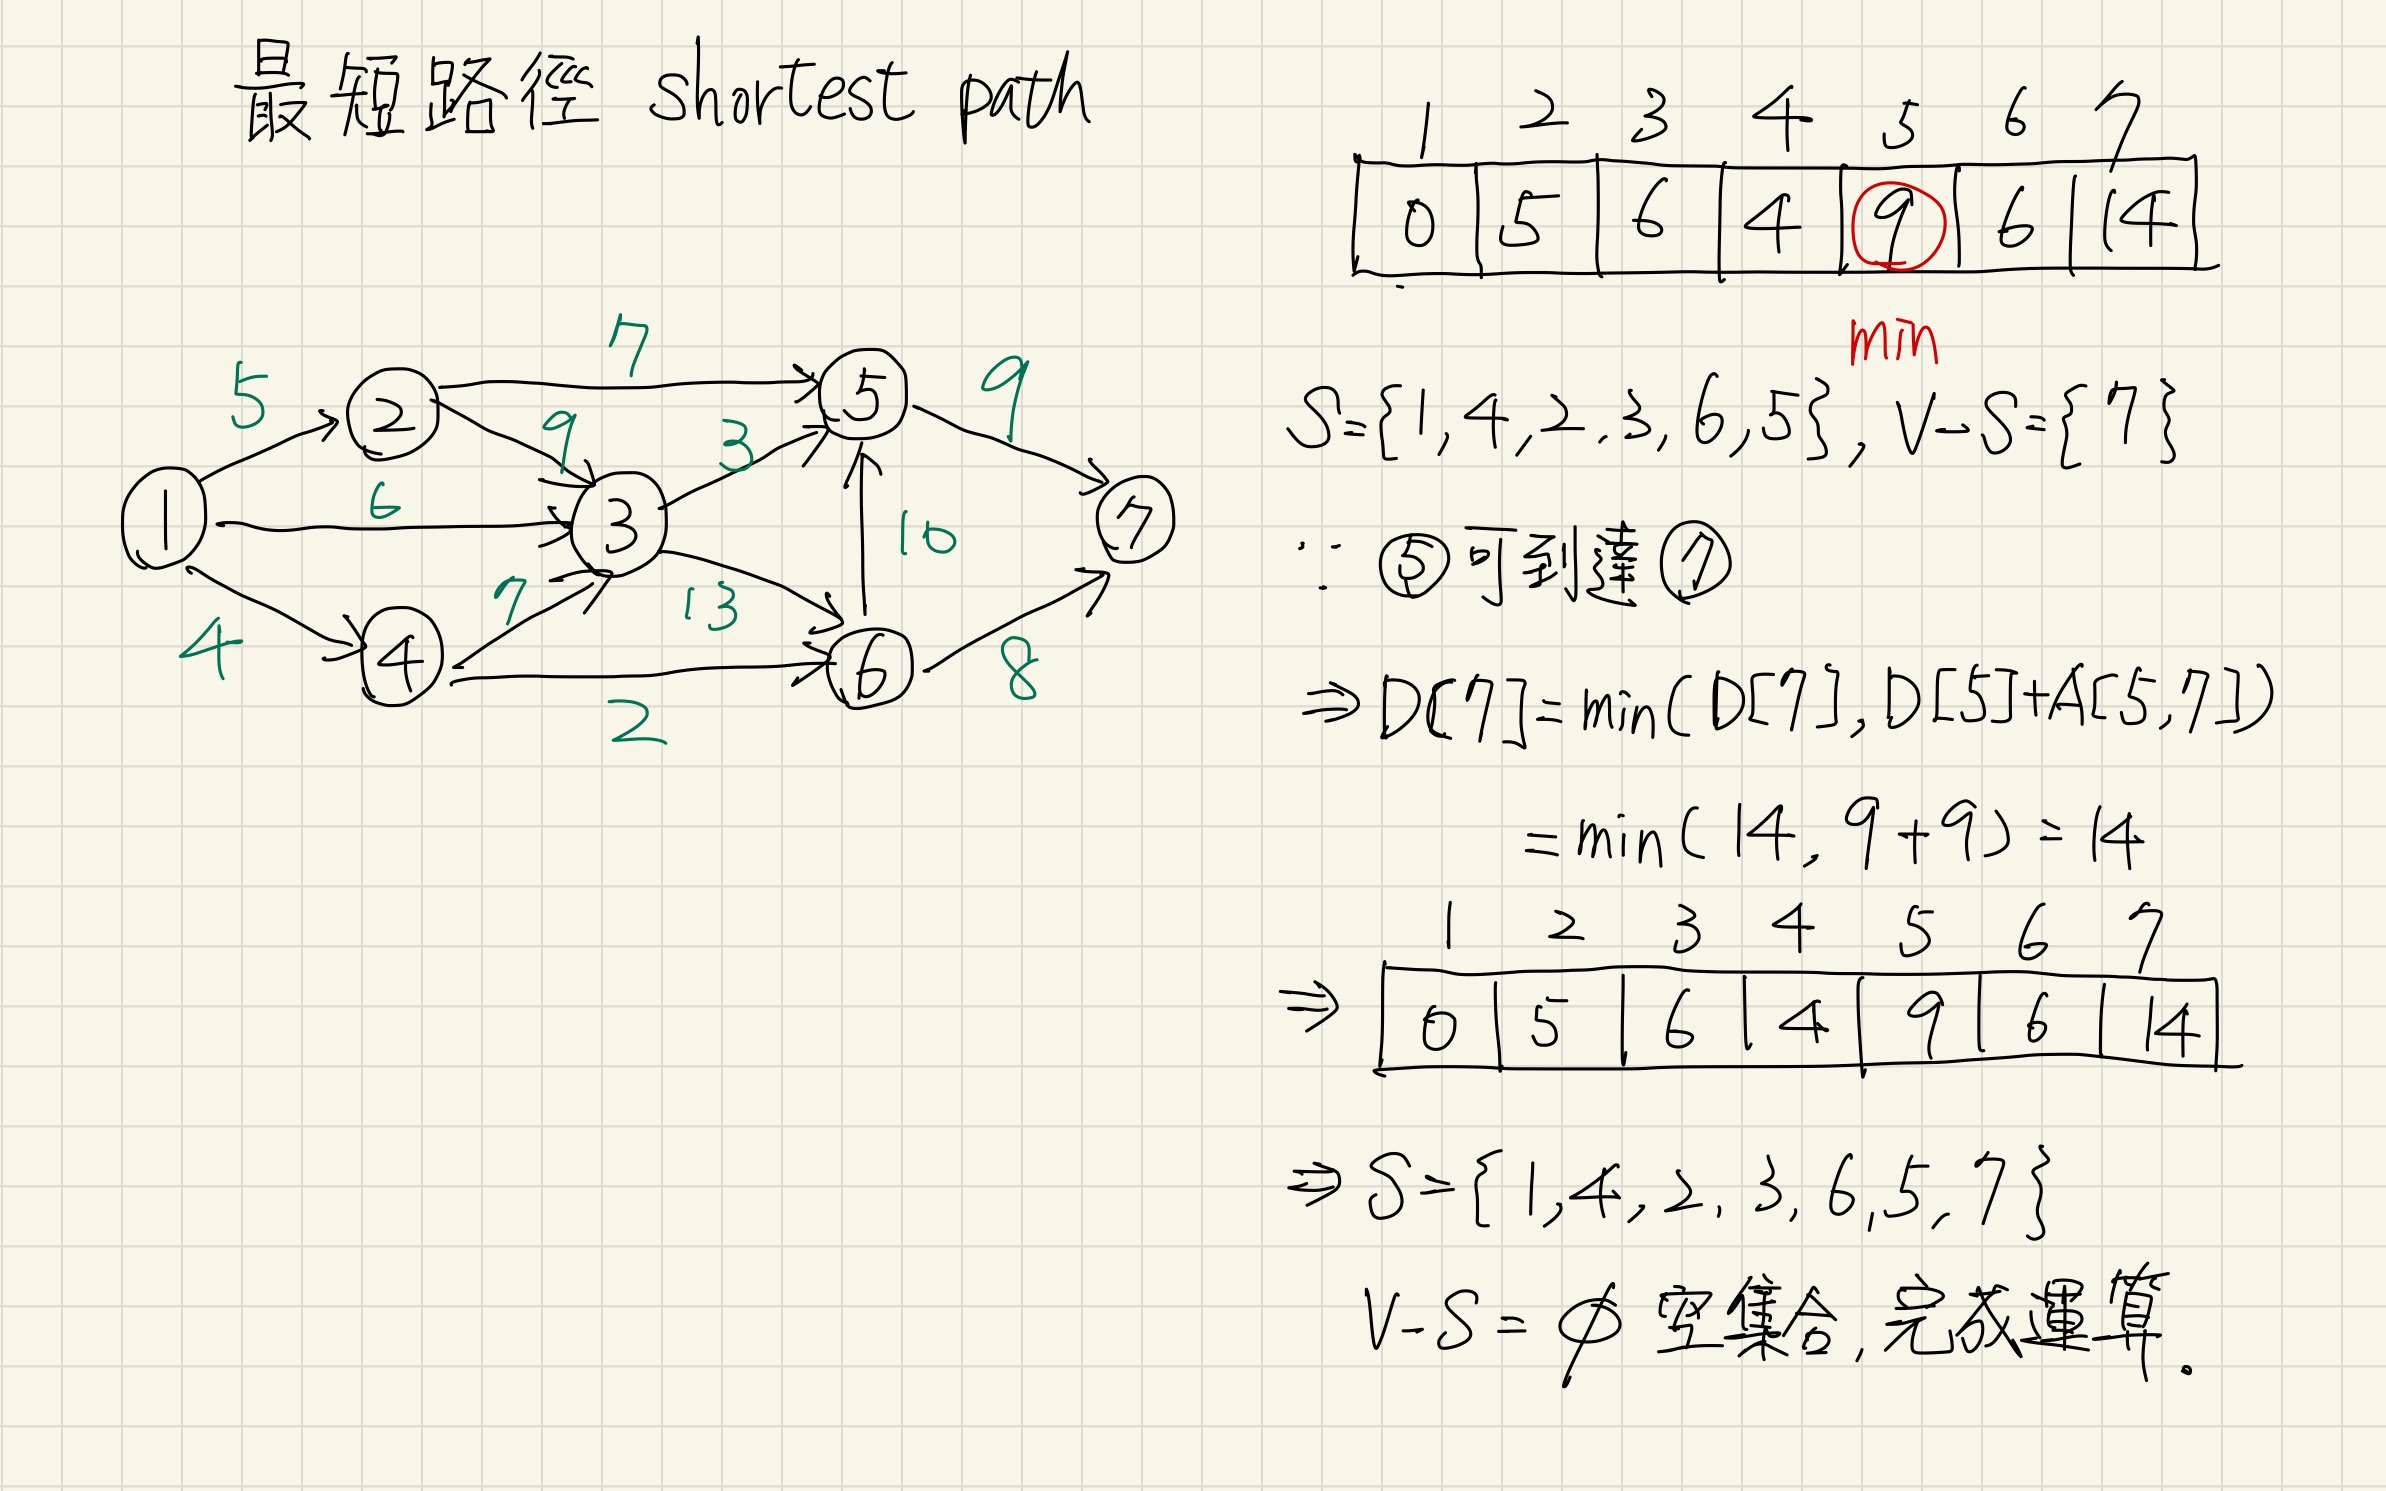 最短路徑 shortest path
5
7
9
6
3
9
4
7
13
10
2
8
1
2
3
4
5
6
7
1 2 3 4 5 6 7
0 5 6 4 9 6 14
min
S={1,4,2,3,6,5}, V-S={7}
∵ ⑤可到達⑦
⇒D[7]=min(D[7],D[5]+A[5,7])
=min(14,9+9)=14
1 2 3 4 5 6 7
⇒ 0 5 6 4 9 6 14
⇒ S={1,4,2,3,6,5,7}
V-S=∅ 空集合,完成運算.